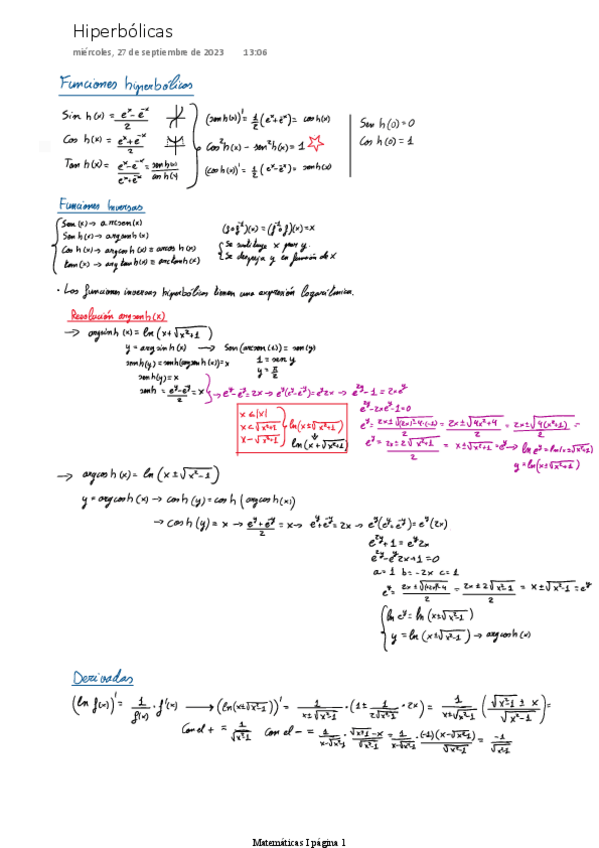 Hiperbólicas
miércoles, 27 de septiembre de 2023 13:06
Funciones hiperbólicos
Sin h(x) = (e^x - e^-x)/2
(senh(x))' = 1/2 (e^x + e^-x) = cosh(x)
Sen h(0) = 0
Cos h(x) = (e^x + e^-x)/2
Cos²h(x) - sen²h(x) = 1
Cos h(0) = 1
Tan h(x) = (e^x - e^-x)/(e^x + e^-x) = senh(x)/cosh(x)
(cosh(x))' = 1/2 (e^x - e^-x) = senh(x)
Funciones Inversas
Sen(x) → arcsen(x)
Senh(x) → argsenh(x)
Cosh(x) → argcosh(x) = arcosh(x)
tan(x) → argtanh(x) = arctanh(x)
(f∘f^-1)(x) = (f^-1∘f)(x) = x
Se sustituye x por y.
Se despeja y en función de x
· Las funciones inversas hiperbólicas tienen una expresión logarítmica.
Resolución argsenh(x)
→ argsinh(x) = ln(x + √(x²+1))
y = argsinh(x) → Sen(arcsen(1)) = sen(y)
senh(y) = senh(argsenh(x)) = x
1 = sen y
senh(y) = x
y = π/2
senh = (e^y - e^-y)/2 = x → e^y - e^-y = 2x → e^y(e^y - e^-y) = e^y 2x → e^2y - 1 = 2xe^y
e^2y - 2xe^y - 1 = 0
x ≤ |x|
x < √(x²+1)
x - √(x²+1)
ln(x ± √(x²+1))
↓
ln(x + √(x²+1))
e^y = (2x ± √((2x)² - 4·(-1)))/2 = (2x ± √(4x²+4))/2 = (2x ± √(4(x²+1)))/2 =
e^y = (2x ± 2√(x²+1))/2 = x ± √(x²+1) = e^y → ln e^y = ln(x ± √(x²+1))
y = ln(x ± √(x²+1))
→ argcosh(x) = ln(x ± √(x²-1))
y = argcosh(x) → cosh(y) = cosh(argcosh(x))
→ cosh(y) = x → (e^y + e^-y)/2 = x → e^y + e^-y = 2x → e^y(e^y + e^-y) = e^y(2x)
e^2y + 1 = e^y 2x
e^2y - e^y 2x + 1 = 0
a = 1 b = -2x c = 1
e^y = (2x ± √((-2x)² - 4))/2 = (2x ± 2√(x²-1))/2 = x ± √(x²-1) = e^y
ln e^y = ln(x ± √(x²-1))
y = ln(x ± √(x²-1)) → argcosh(x)
Derivadas
(ln f(x))' = 1/f(x) · f'(x) → (ln(x ± √(x²-1)))' = 1/(x ± √(x²-1)) · (1 ± 1/(2√(x²-1)) · 2x) = 1/(x ± √(x²-1)) ((√(x²-1) ± x)/√(x²-1)) =
Con el + = 1/√(x²-1) Con el - = 1/(x - √(x²-1)) · (√(x²-1) - x)/√(x²-1) = 1/(x - √(x²-1)) · (-1)(x - √(x²-1))/√(x²-1) = -1/√(x²-1)
Matemáticas I página 1